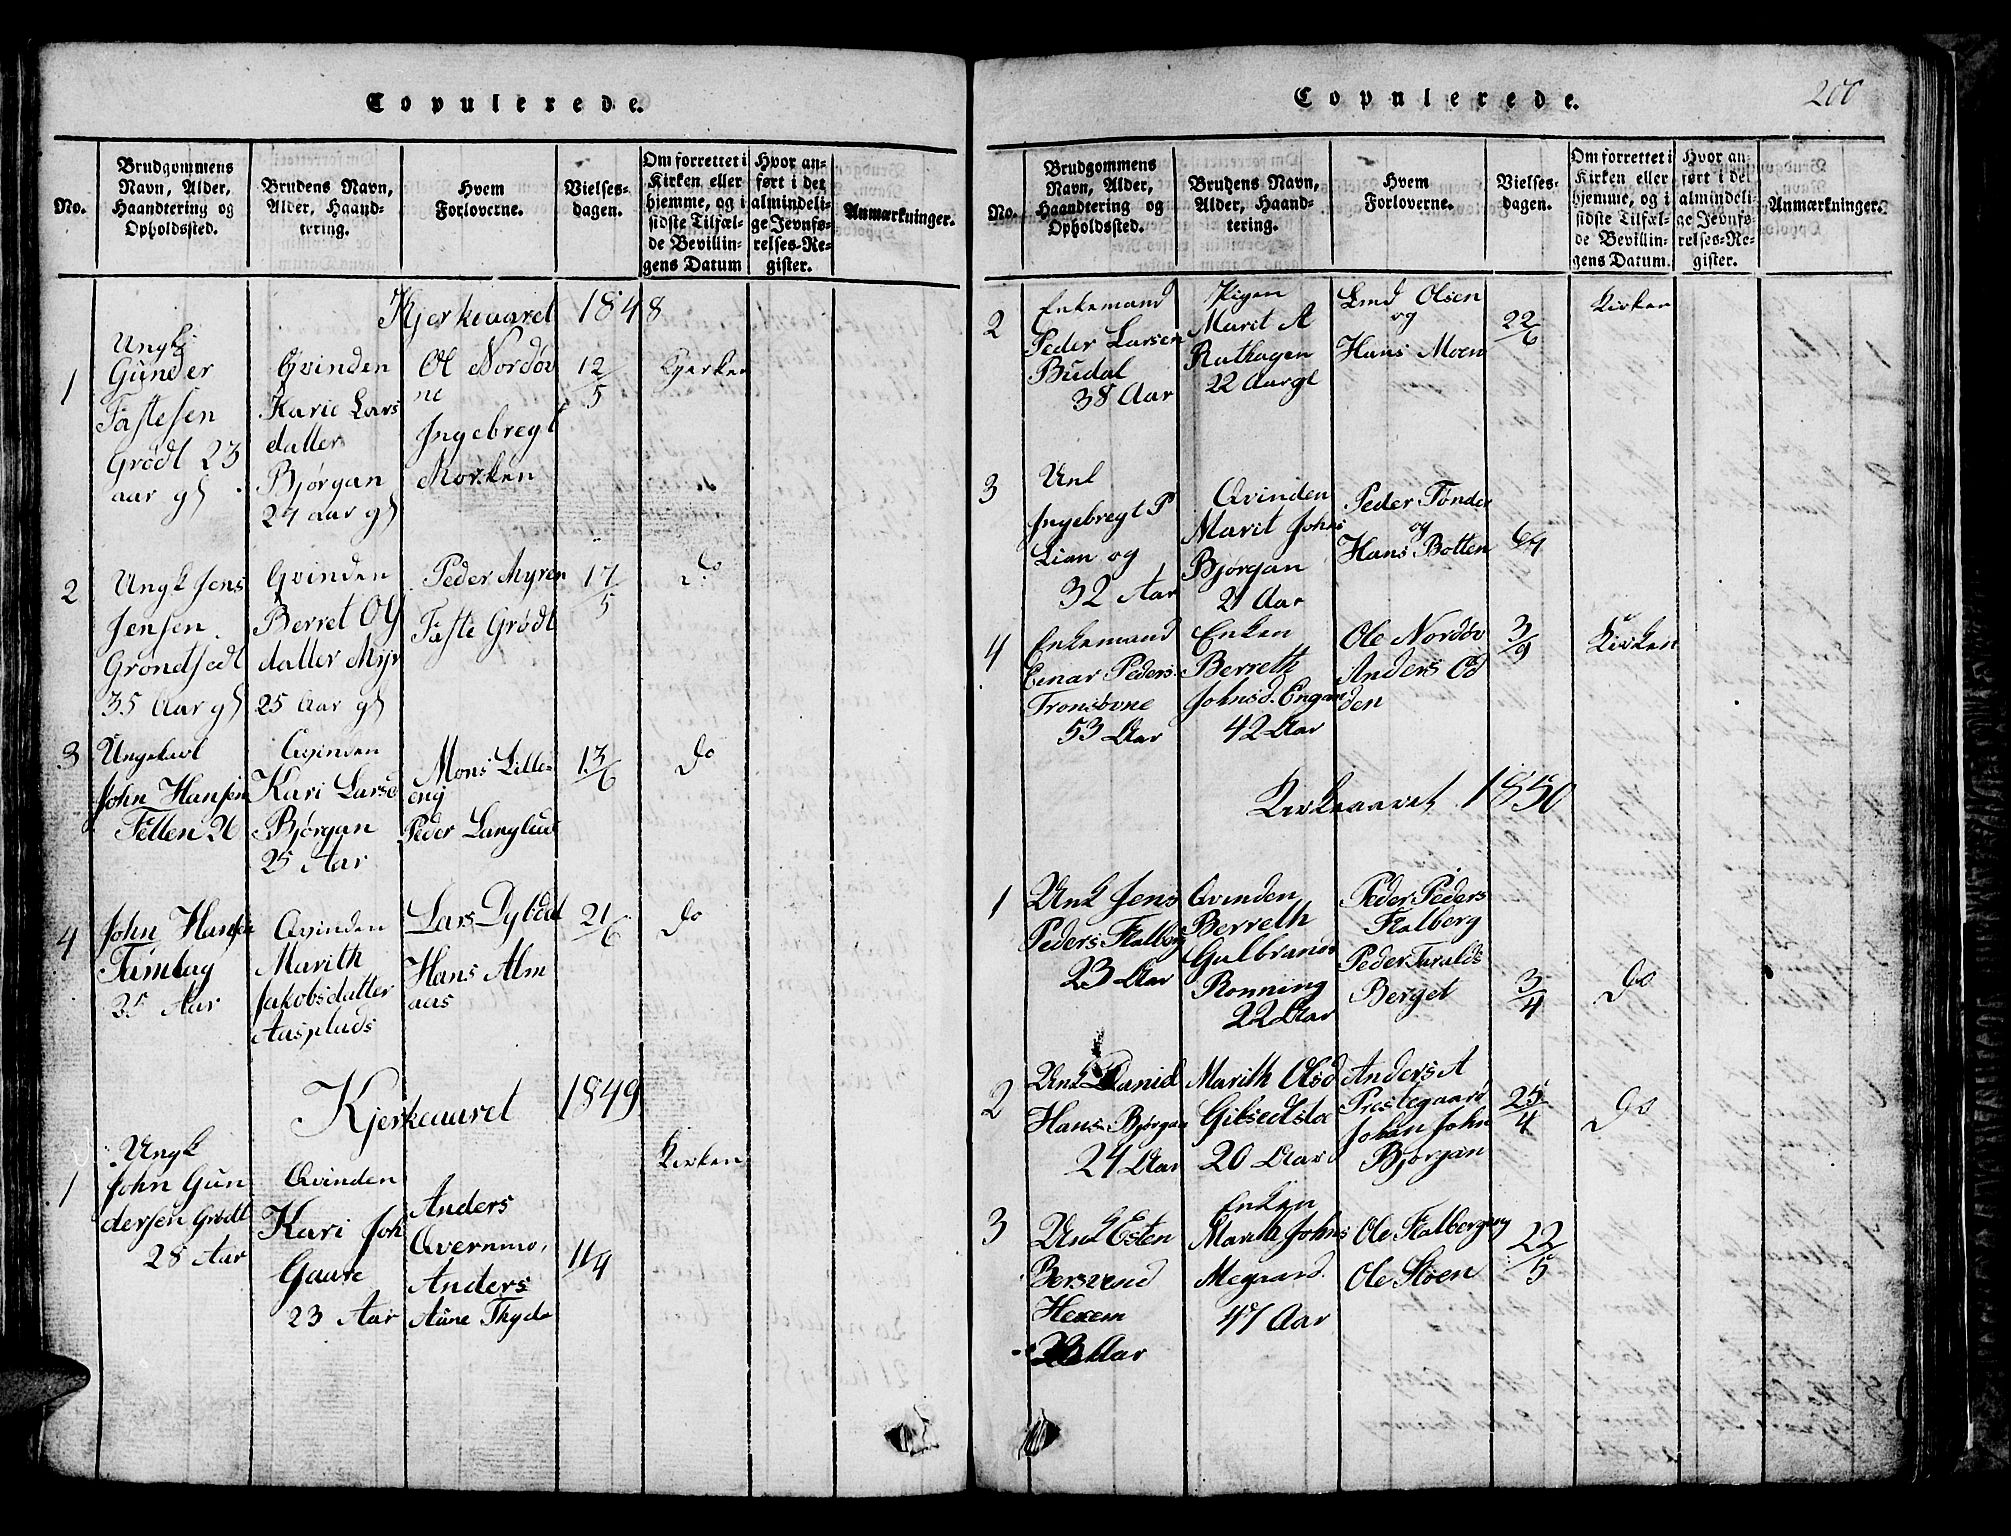 Copulerede.
No.
Brudgommens
Navn, Alder,
Haandtering og
Opholdssted.
Brudens Navn,
Alder, Haand-
tering.
Hvem
Forloverne.
Vielses-
dagen.
Om forrettet i
Kirken eller
hjemme, og i
sidste Tilfæl-
de Bevillin-
gens Datum
Hvor an-
ført i det
almindeli-
ge Jevnfø-
relses-Re-
gister.
Anmærkninger.
Kjerkeaaret 1848
1
Ungk
Gunder
Fastesen
Grødt 23
aar gl
Qvinden
Karie Lars
datter
Bjørgan
24 aar gl
Ol Nordøv
ne
Ingebregt
Morken
12/5
Kjerken
2
Ungk Jens
Jensen
Grondtsedt
35 Aar gl
Qvinden
Berret Ols
datter Myr
25 Aar gl
Peder Myren
Faste Grødt
17/5
do
3
Ungekarl
John Hansen
Fetten 26
Qvinden
Kari Larsd
Bjørgan
25 Aar
Mons Lille-
eng
Peder Langlud
13/6
do
4
John Hansen
Tamlag
35 Aar
Qvinden
Marith
Jakobsdatter
Aasplads
Lars Dybdal
Hans Alm
aas
21/6
do
Kjerkeaaret 1849
1
Ungk
John Gun
dersen Grødt
28 Aar
Qvinden
Kari Joh
Gaare
23 Aar
Anders
Overnmo,
Anders
Aune Thyda
11/4
Kirken
Copulerede.
200
No.
Brudgommens
Navn, Alder,
Haandtering og
Opholdssted.
Brudens Navn,
Alder, Haand-
tering.
Hvem
Forloverne.
Vielses-
dagen.
Om forrettet i
Kirken eller
hjemme, og i
sidste Tilfæl-
de Bevillin-
gens Datum.
Hvor an-
ført i det
almindeli-
ge Jevnfø-
relses-Re-
gister.
Anmærkninger.
2
Enkemand
Peder Larsen
Budal
38 Aar
Pigen
Marit A
Rathagen
22 Aar gl
Lmd Olsen
og
Hans Moen
22/6
Kirken
3
Unk
Ingebregt P
Lian og
32 Aar
Qvinden
Marit Johns
Bjørgan
21 Aar
Peder Tønder
og
Hans Botten
6/4
4
Enkemand
Einar Peders
Tronsøvne
53 Aar
Enken
Berreth
Johnsd. Engan
42 Aar
Ole Nordøv
Anders Od
den
3/9
Kirken
Kirkeaaret 1850
1
Unk Jens
Peders Flalberg
23 Aar
Qvinden
Berreth
Gulbrands
Ronning
22 Aar
Peder Peders
Flalberg
Peder Taralds
Berget
3/4
do
2
Unk Daniel
Hans Bjørgan
24 Aar
Marith Olsd
Gilsedtstø
20 Aar
Anders A
Prestegaard
Johan John
Bjørgan
25/4
do
3
Unk Esten
Bersvend
Hexem
23 Aar
Enken
Marith Johns
Megaard
47 Aar
Ole Flalbergeng
Ole Støen
22/5